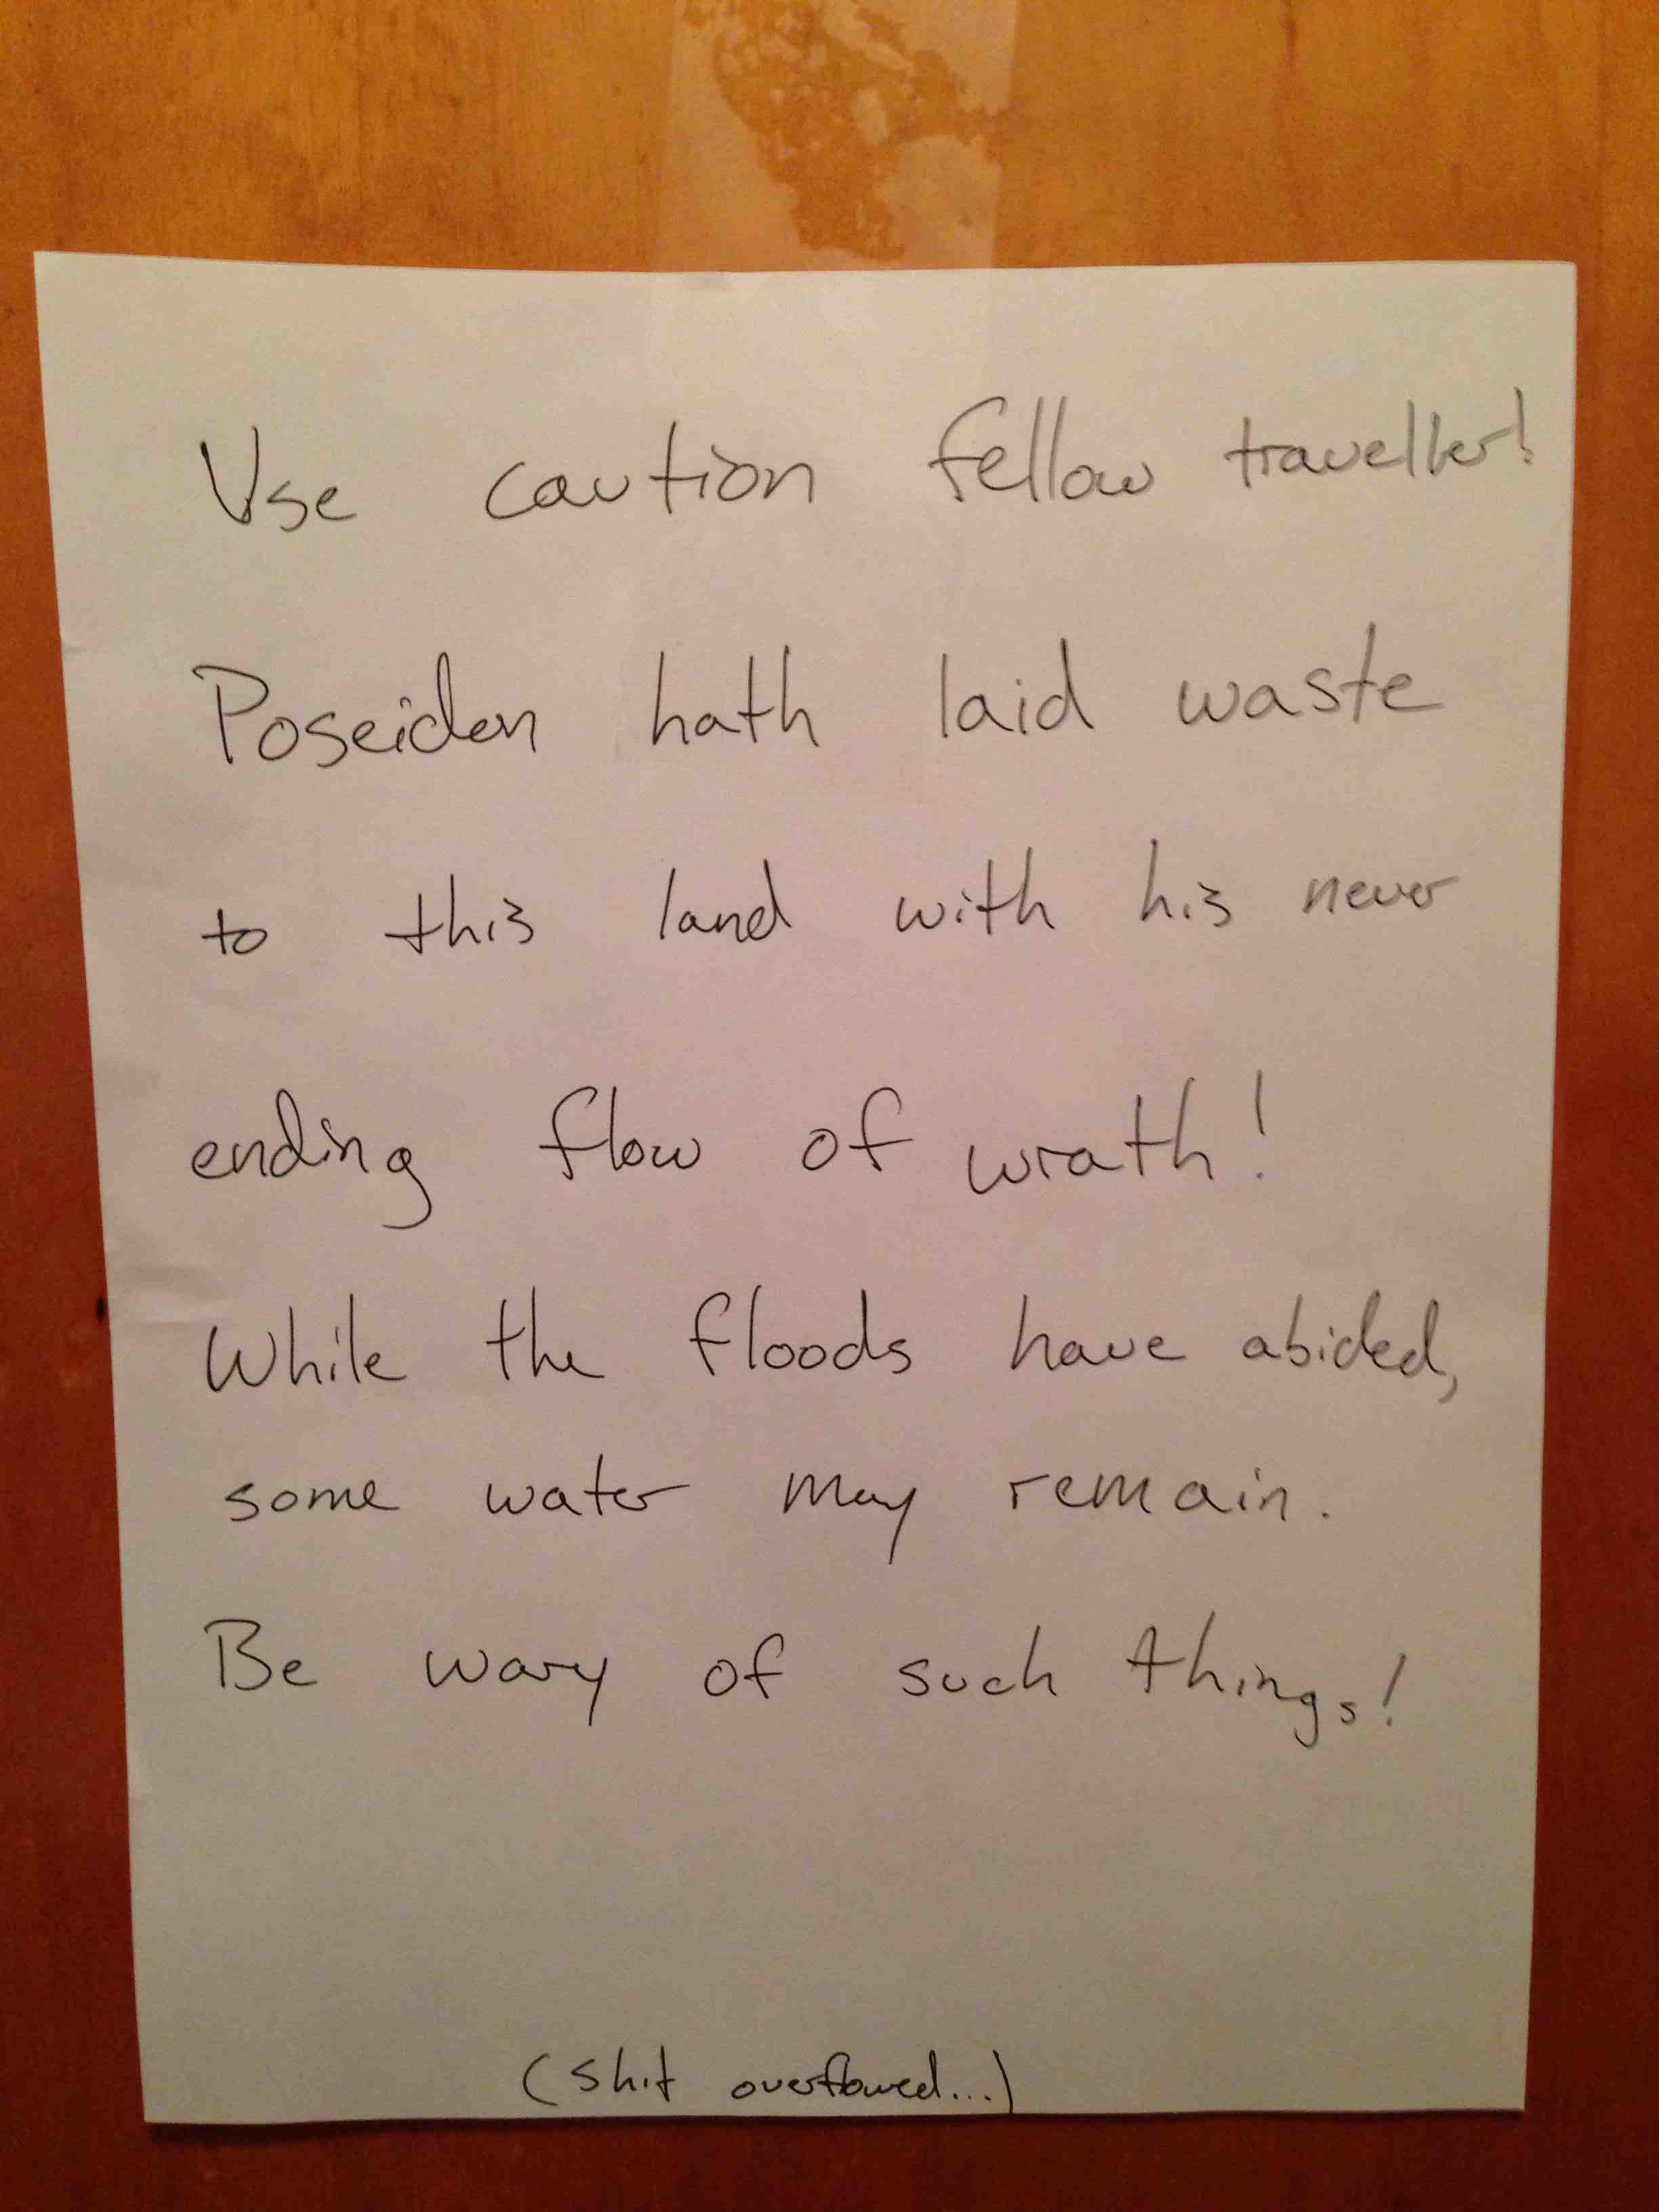 Use caution fellow traveller!
Poseiden hath laid waste
to this land with his never
ending flow of wrath!
While the floods have abided,
some water may remain.
Be wary of such things!
(shit overflowed...)